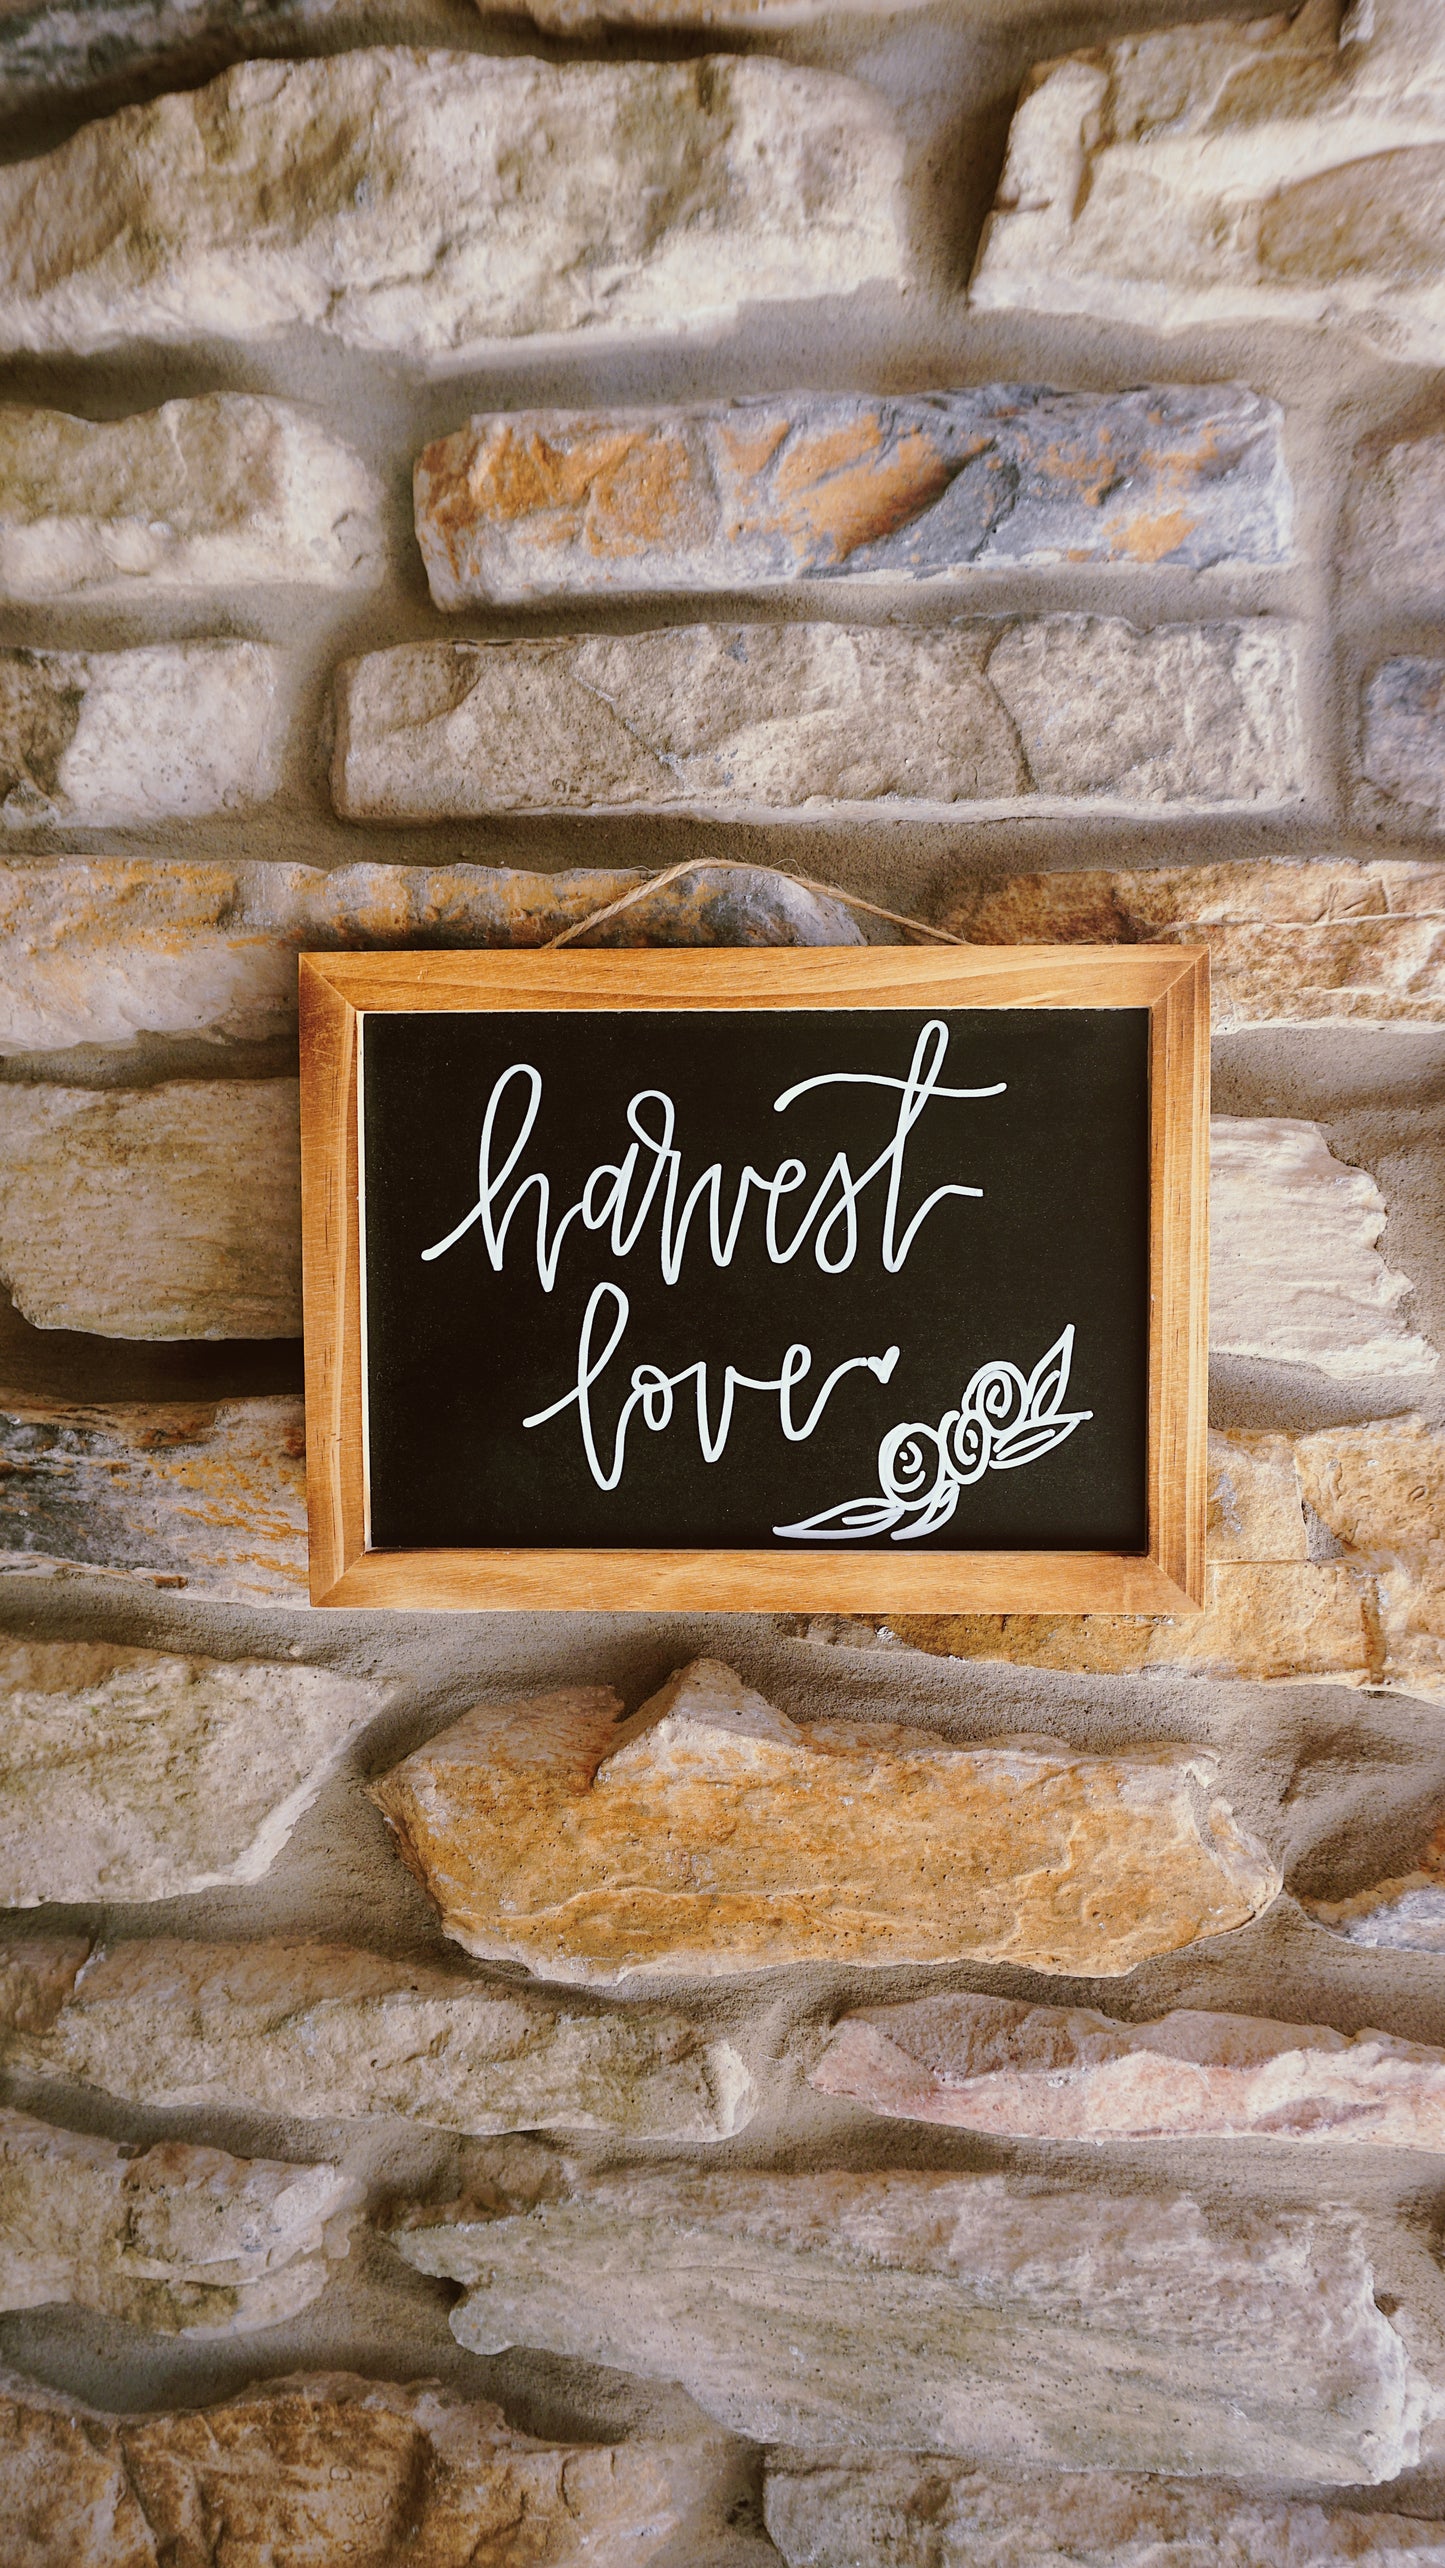 harvest
love